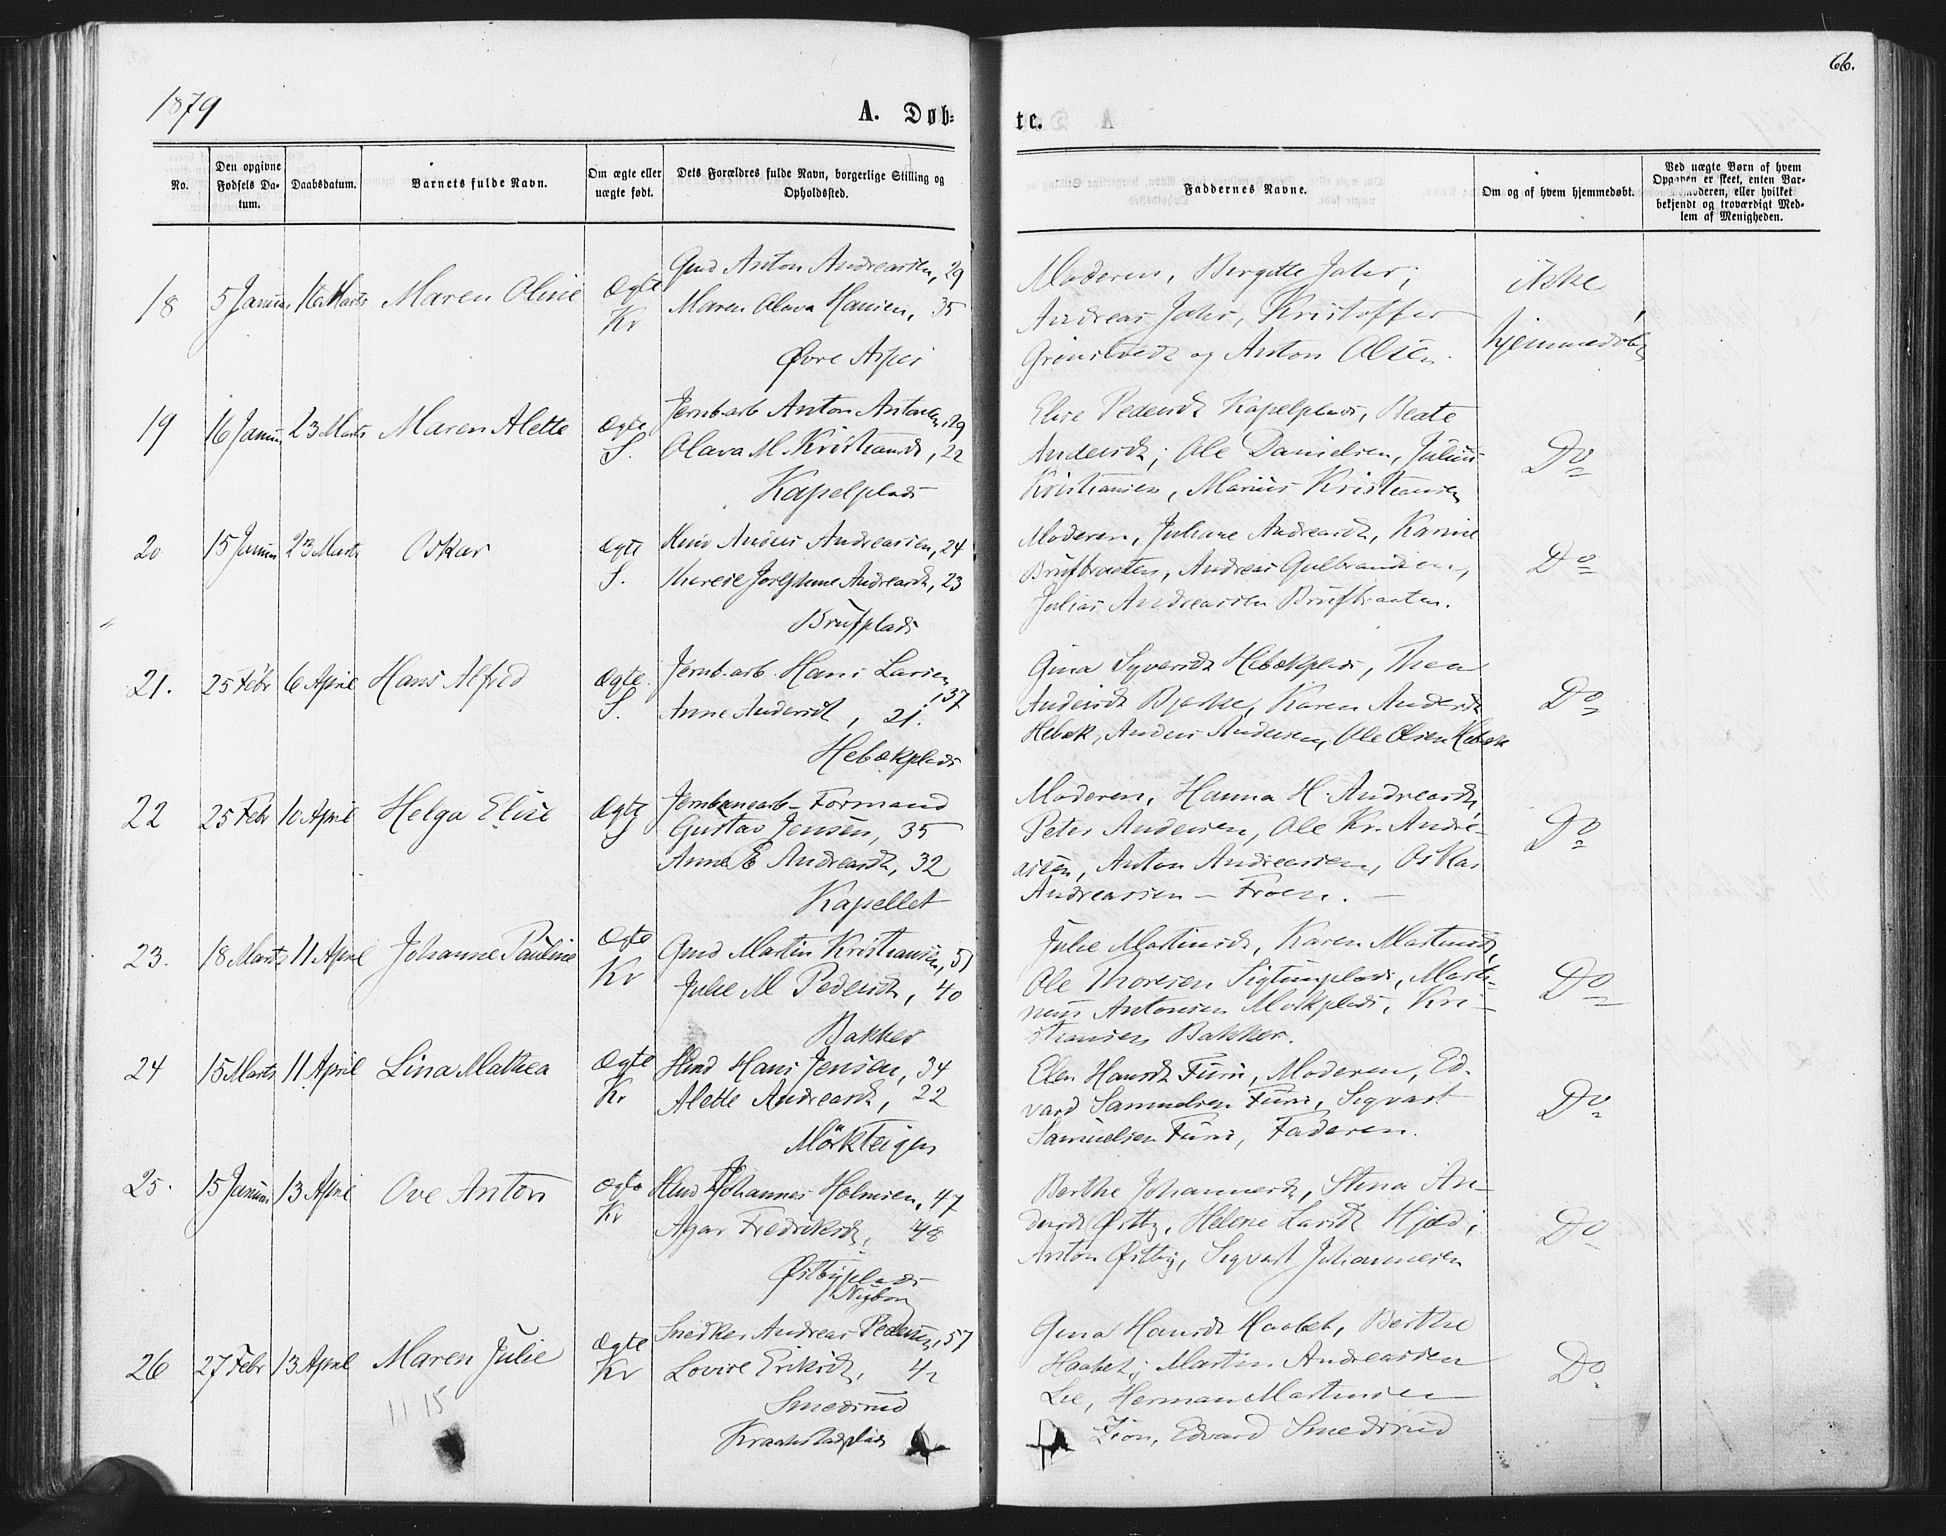 1879
A. Døb-
te.
66.
No.
Den opgivne
Fødsels Da-
tum.
Daabsdatum.
Barnets fulde Navn.
Om ægte eller
uægte født.
Dets Forældres fulde Navn, borgerlige Stilling og
Opholdssted.
Faddernes Navne.
Om og af hvem hjemmedøbt.
Ved uægte Børn af hvem
Opgaven er skeet, enten Bar-
moderen, eller hvilket
bekjendt og troværdigt Med-
lem af Menigheden.
18 5 Januar 16 Marts Maren Oline Ægte Kr
Gmd Anton Andreassen, 29
Maren Olava Hansen, 35
Øvre Asper
Moderen, Birgitte Jahr;
Andreas Jahr, Kristoffer
og Anton Olsen.
ikke
hjemmedøbt
19 16 Januar 23 Marts Maren Alette Ægte S.
Jernb.arb Anton Antonsen, 29
Olava M. Kristiansdt, 22
Kapelplads
Elise Pedersdt Kapelplads, Beate
Andersdt; Ole Danielsen, Julius
Kristiansen, Marius Kristiansen
Do
20 15 Januar 23 Marts Oskar Ægte S.
Andreassen, 24
Therese Josephine Andreasdt, 23
Brufplads
Moderen, Juliane Andreasdt, Karine
Brufbraaten, Andreas Gulbrandsen,
Julius Andreassen Brufbraaten.
Do
21. 25 Febr 6 April Hans Alfred Ægte S.
Jernb.arb Hans Larsen, 37
Anne Andersdt, 21.
Hebækplads
Gina Syversdt Hebækplads, Thea
Andersdt Bjerke, Karen Andersdt
Hebæk, Anders Andersen, Ole Olsen Hebæk
Do
22 25 Febr 10 April Helga Elise Ægte S
Jernbanearb-Formand
Gustav Jensen, 35
Anna E Andreasdt, 32
Kapellet
Moderen, Hanna H. Andreasdt,
Peter Andersen, Ole Kr. Andre-
assen, Anton Andreassen, Oskar
Andreassen - Froen. -
Do
23. 18 Marts 11 April Johanne Pauline Ægte Kr
Gmd Martin Kristiansen, 51
Julie M Pedersdt, 40
Bakker
Julie Martinsdt, Karen Martinsdt,
Ole Thoresen Sigtunplads, Marti-
nus Antonsen Mørkplads, Kri-
stiansen Bakker.
Do
24 15 Marts 11 April Lina Mathea Ægte Kr
Hans Jensen, 34
Alette Andreasdt, 22
Mørkteigen
Elen Hansdt Furu, Moderen, Ed-
vard Samuelsen Furu, Sigvart
Samuelsen Furu, Faderen.
Do
25. 15 Januar 13 April Ove Anton Ægte Kr
Johannes Holmsen, 47
Agar Fredriksdt, 48
Østbyplads
Nybo
Berthe Johannesdt, Stina An-
dersdt Østby, Helene Larsdt
Anton Østby, Sigvart Johannesen
Do
26 27 Febr 13 April Maren Julie Ægte Kr
Snedker Andreas Pedersen, 57
Lovise Eriksdt, 42
Smedsrud
Kraakstadplads
Gina Hansdt Haabet, Berthe
Haabet; Martin Andreassen
Lie, Herman Martinsen
Zion, Edvard Smedsrud
Do
11 15